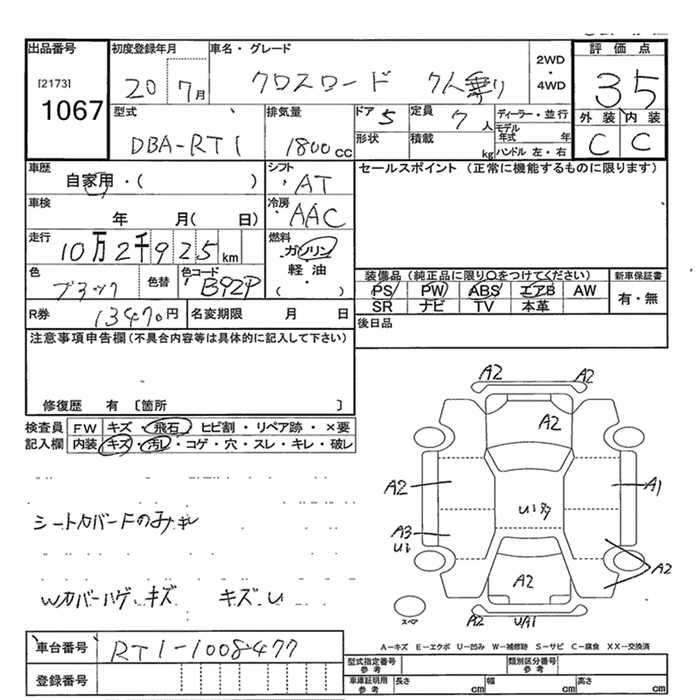 出品番号 初度登録年月 車名・グレード 2WD・4WD 評価点
[2173] 1067 20 7月 クロスロード 7人乗り 35
型式 DBA-RT1 排気量 1800cc
ドア 5 定員 7人 ディーラー・並行
形状 積載 kg モデル年式 年 ハンドル 左・右
外装 内装
C C
車歴 自家用・( ) シフト ・AT セールスポイント (正常に機能するものに限ります)
車検 年 月( 日) 冷房 ・AAC
走行 10万2千925km 燃料 ガソリン 軽油 ・( )
色 ブラック 色替 色コード B92P
装備品(純正品に限り○をつけてください) 新車保証書
PS PW ABS エアB AW 有・無
SR ナビ TV 本革
R券 13470円 名変期限 月 日 後日品
注意事項申告欄(不具合内容等は具体的に記入して下さい)
修復歴 有 〔箇所 〕
検査員 FW キズ・飛石・ヒビ割・リペア跡・×要
記入欄 内装 キズ・汚レ・コゲ・穴・スレ・キレ・破レ
A2 A2
A2
A2 A1
U1
A3
U1
A2
A2
A2 UA1
スペア
シートカバー下のみキレ
Wカバーハゲ・キズ キズ・U
A-キズ E-エクボ U-凹み W-補修跡 S-サビ C-腐食 XX-交換済
車台番号 RT1-1008477
型式指定番号 参考 類別区分番号 参考
登録番号 車庫証明用 参考 長さ cm 幅 cm 高さ cm